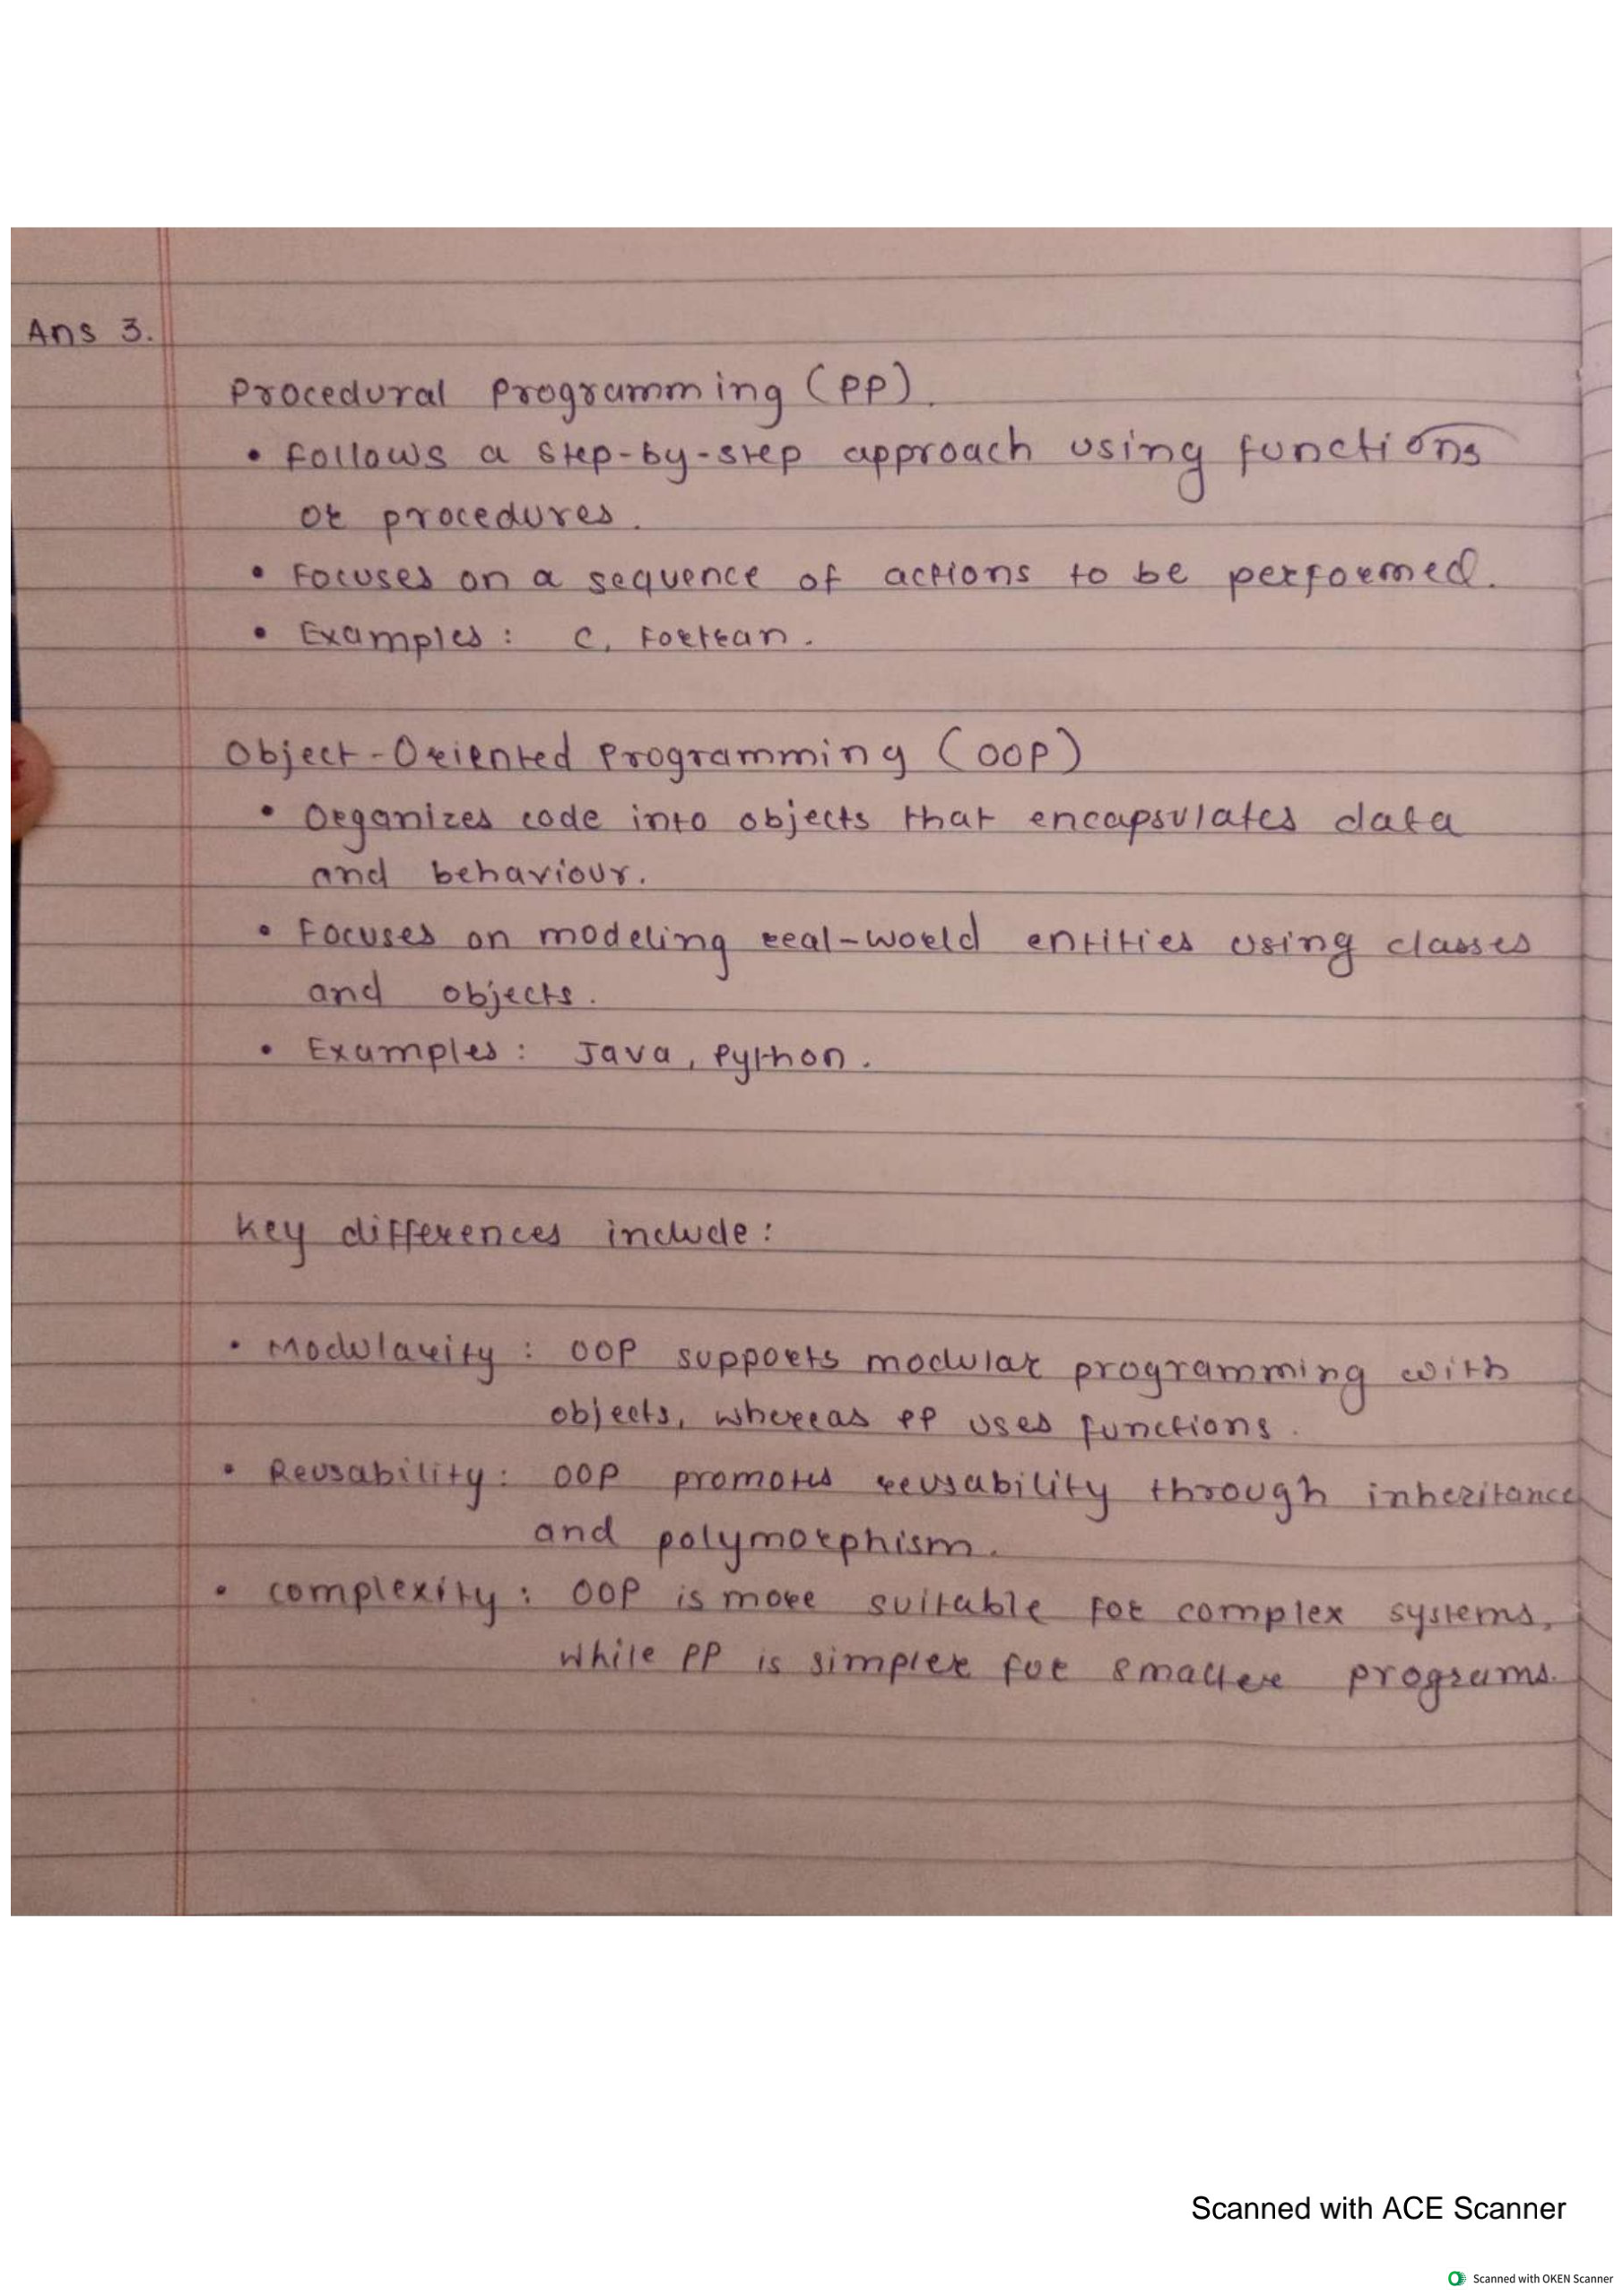 Ans 3.
Procedural Programming (PP).
• Follows a step-by-step approach using functions
or procedures.
• Focuses on a sequence of actions to be performed.
• Examples: C, Fortran.
Object-Oriented Programming (OOP)
• Organizes code into objects that encapsulates data
and behaviour.
• Focuses on modeling real-world entities using classes
and objects.
• Examples: Java, Python.
Key differences include:
• Modularity: OOP supports modular programming with
objects, whereas PP uses functions.
• Reusability: OOP promotes reusability through inheritance
and polymorphism.
• Complexity: OOP is more suitable for complex systems,
while PP is simpler for smaller programs.
Scanned with ACE Scanner
Scanned with OKEN Scanner